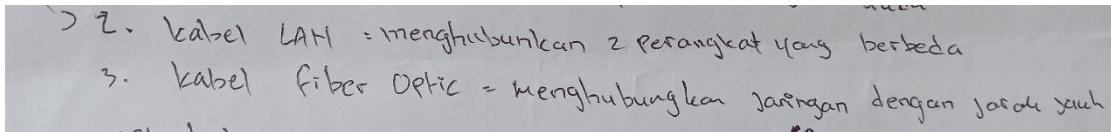 2. kabel LAN = menghubunkan 2 perangkat yang berbeda
3. kabel fiber Optic = menghubungkan Jaringan dengan jarak jauh